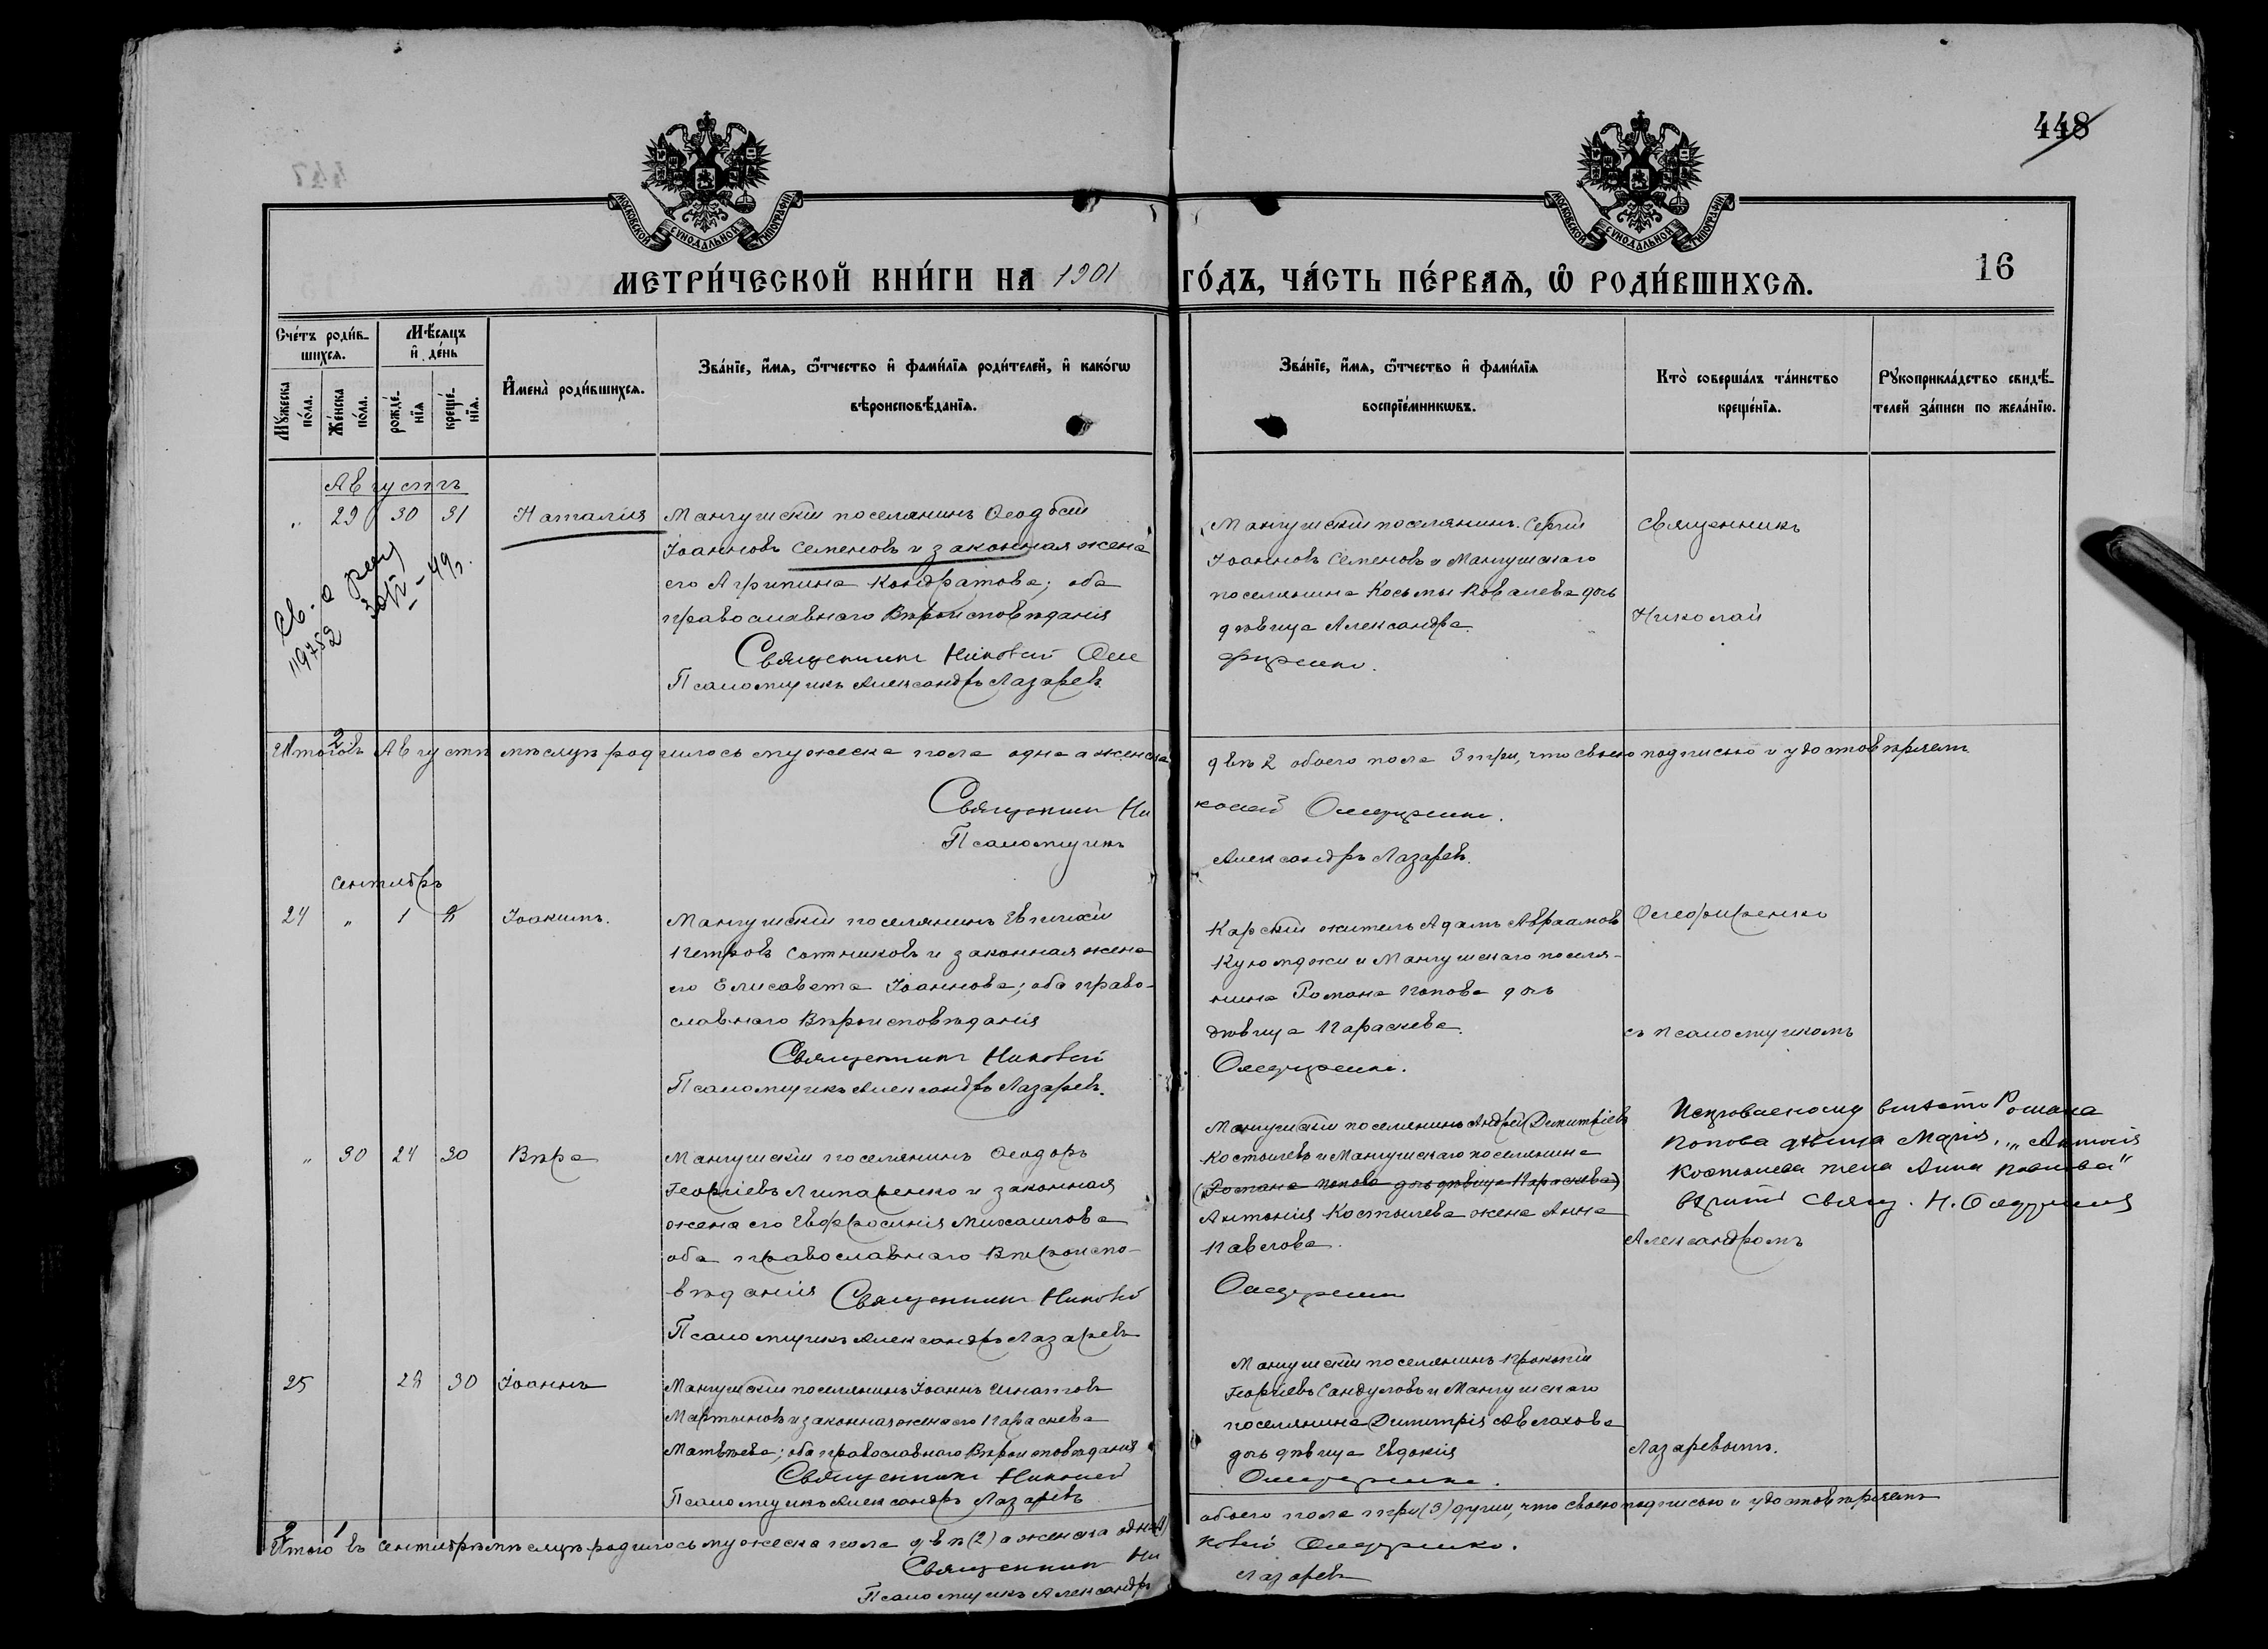 448
МОСКОВСКОЙ СѴНОДАЛЬНОЙ ТИПОГРАФІИ
МОСКОВСКОЙ СѴНОДАЛЬНОЙ ТИПОГРАФІИ
МЕТРИ́ЧЕСКОЙ КНИ́ГИ НА 1901 ГО́ДЪ, ЧА́СТЬ ПЕ́РВАѦ, Ѡ҆ РОДИ́ВШИХСѦ.
16
Сче́тъ роди́в-
шихсѧ.
Мꙋ́жеска по́ла.
Же́нска по́ла.
Мѣ́сѧцъ
и҆ де́нь
рожде́-
нїѧ
креще́-
нїѧ.
И҆мена̀ роди́вшихсѧ.
Зва́нїе, и҆́мѧ, ѻ҆́тчество и҆ фами́лїѧ роди́телей, и҆ како́гѡ
вѣроисповѣ́данїѧ.
Зва́нїе, и҆́мѧ, ѻ҆́тчество и҆ фами́лїѧ
воспрїе́мникѡвъ.
Кто̀ соверша́лъ та́инство
креще́нїѧ.
Рꙋкоприкла́дство свидѣ́-
телей за́писи по жела́нїю.
Августъ
„ 29 30 31 Наталія
Мангушскій поселянинъ Ѳеодосій
Іоанновъ Семеновъ и законная жена
его Агрипина Кондратова; оба
православнаго Вѣроисповѣданія
Священникъ Николай
Псаломщикъ Александръ Лазаревъ
Мангушскій поселянинъ Сергій
Іоанновъ Семеновъ и Мангушскаго
поселянина Косьмы Ковалева дочь
дѣвица Александра.
Священникъ
Николай
11978
Итого въ Августѣ мѣсяцѣ родилось мужеска пола одна а женска
двѣ 2 обоего пола 3 три, что своею подписью и удостовѣряемъ
Священникъ Ни
колай Олефиренко.
Псаломщикъ
Александръ Лазаревъ.
Сентябрь
24 „ 1 Іоакимъ.
Мангушскій поселянинъ Евтихій
Петровъ Сотниковъ и законная жена
его Елисавета Іоаннова; оба право-
славнаго Вѣроисповѣданія
Священникъ Николай
Псаломщикъ Александръ Лазаревъ.
Карскій житель Адамъ Авраамовъ
Куюмджи и Мангушскаго поселя-
нина Романа Попова дочь
дѣвица Параскева.
Олефиренко.
Олефиренко
съ псаломщикомъ
„ 30 24 30 Вѣра
Мангушскій поселянинъ Ѳеодоръ
Георгіевъ Липаренко и законная
жена его Евфросинія Михаилова
оба православнаго Вѣроиспо-
вѣданія Священникъ Николай
Псаломщикъ Александръ Лазаревъ
Мангушскій поселянинъ Андрей Димитріевъ
Костылевъ и Мангушскаго поселянина
(Романа Попова дочь дѣвица Параскева)
Антонія Костылева жена Анна
Павлова.
Олефиренко
вмѣсто Романа
Попова дѣвица Марія, „Антонія
Костылева жена Анна Павлова"
Свящ. Н. Олефиренко
Александромъ
25 30 Іоаннъ
Мангушскій поселянинъ Іоаннъ Игнатовъ
Мартыновъ и законная жена его Параскева
Матвѣева; оба православнаго Вѣроисповѣданія
Священникъ Николай
Псаломщикъ Александръ Лазаревъ
Мангушскій поселянинъ Прокопій
Георгіевъ Сандуловъ и Мангушскаго
поселянина Димитрія Авлахова
дочь дѣвица Евдокія
Олефиренко.
Лазаревымъ.
Итого въ Сентябрѣ мѣсяцѣ родилось мужеска пола двѣ (2) а женска одна (1)
обоего пола три (3) души, что своею подписью и удостовѣряемъ
Священникъ Ни
колай Олефиренко.
Псаломщикъ Александръ
Лазаревъ